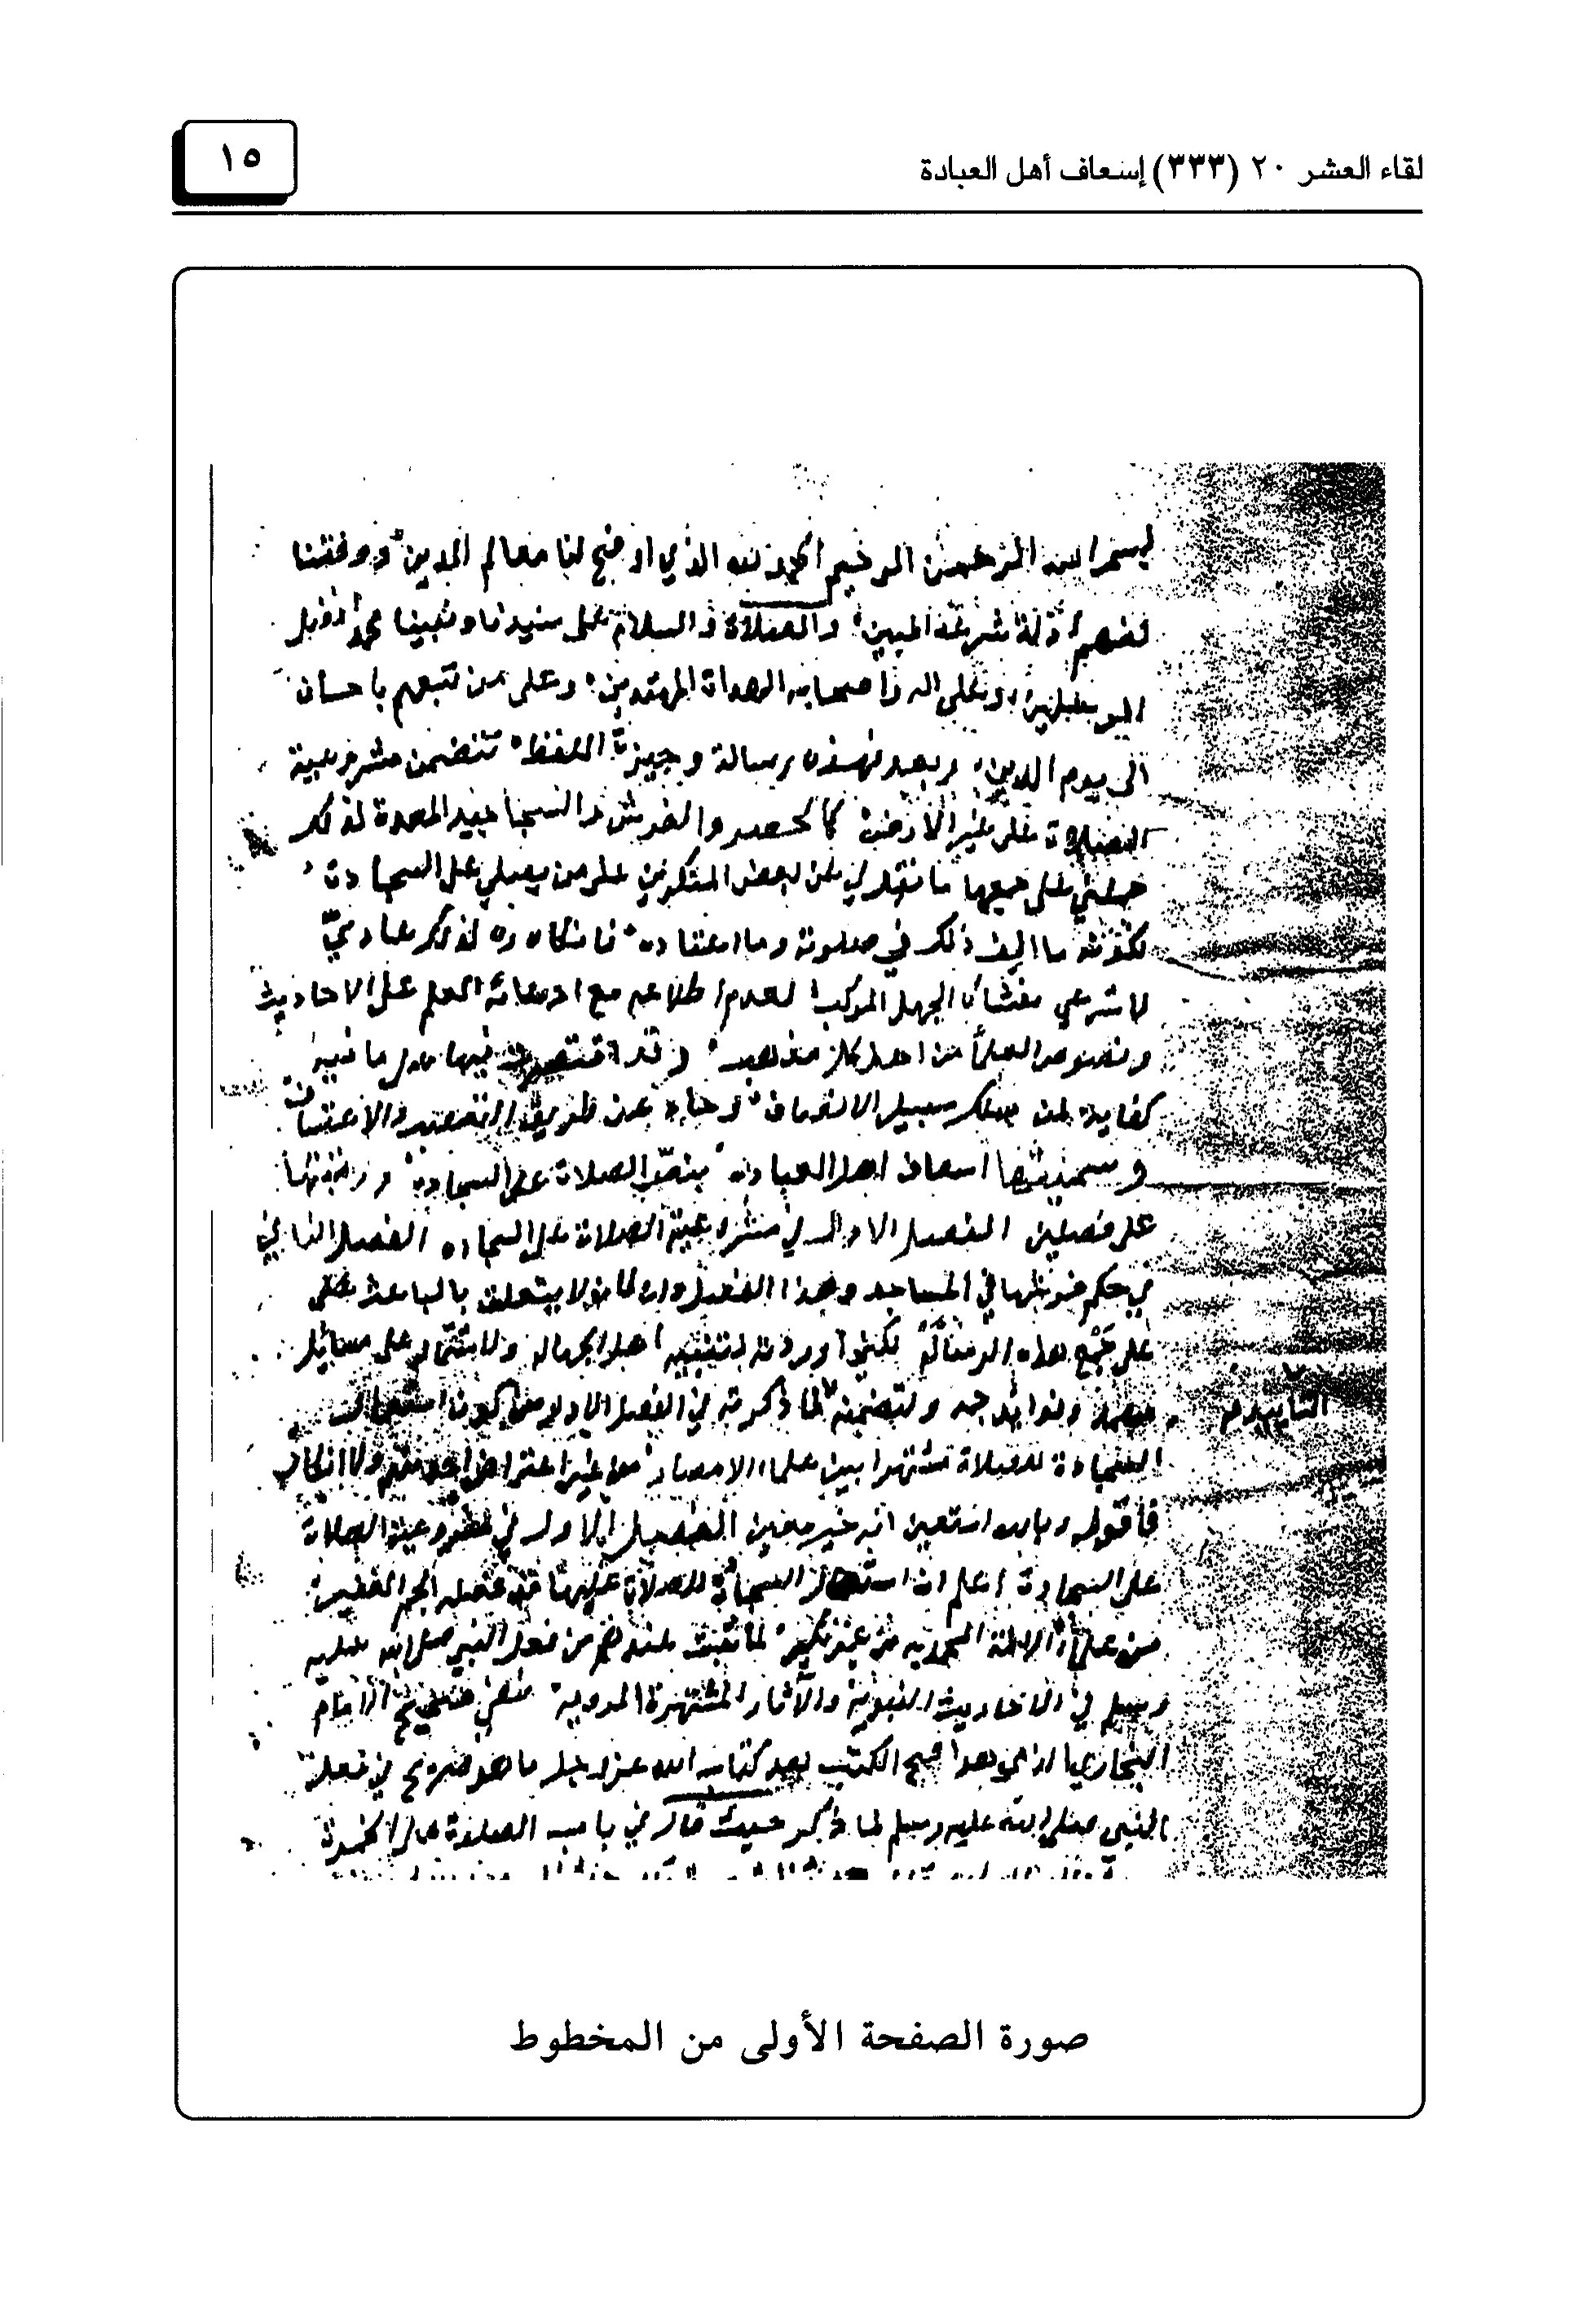 لقاء العشر ٢٠ (٣٣٣) إسعاف أهل العبادة
١٥
بسم الله الرحمن الرحيم الحمد لله الذي اوضح لنا معالم الدين ووفقنا
لفهم ادلة شريعته المبين والصلاة والسلام على سيدنا ونبينا محمد افضل
المرسلين وعلى اله واصحابه الهداة المهتدين وعلى من تبعهم باحسان
الى يوم الدين وبعد فهذه رسالة وجيزة اللفظ تتضمن مشروعية
الصلاة على غير الارض كالحصير والفرش والسجاجيد المعدة لذلك
حملني على جمعها ما نقل لي عن بعض المنكرين على من يصلي على السجادة
لكونه ما الف ذلك في صلوته وما اعتاده فانكاره لذلك عاديّ
لا شرعي منشأه الجهل المركب لعدم اطلاعه مع ادعائه العلم على الاحاديث
ونصوص العلماء من اهل كل مذهب وقد اقتصرت فيها على ما فيه
كفاية لمن سلك سبيل الانصاف وحاد عن طريق التعصب والاعتساف
وسميتها اسعاف اهل العبادة بنصّ الصلاة على السجادة ورتبتها
على فصلين الفصل الاول في مشروعية الصلاة على السجاده الفصل الثاني
في حكم فرشها في المساجد وهذا الفصل وان كان لا يتعلق بالباعث على
على جمع هذه الرسالة لكني اوردته لتنبيه اهل الجهالة ولاشتماله على مسائل
مهمة وفوائد جمه ولتضمنه لما ذكرته في الفصل الاول من كون استعمال
السجادة للصلاة مشتهرا بين علماء الامصار من غير اعتراض احد منهم ولا انكار
فاقول وبالله استعين انه خير معين الفصل الاول في مشروعية الصلاة
على السجادة اعلم ان استعمال السجادة للصلاة عليها قد فعله الجم الغفير
من علماء الامة المحمديه من غير نكير لما ثبت عندهم من فعل النبي صلى الله عليه
وسلم في الاحاديث النبوية والآثار المشتهرة المروية ففي صحيح الامام
البخاري الذي هو اصح الكتب بعد كتاب الله عز وجل ما هو صريح في فعله
النبي صلى الله عليه وسلم لما ذكر حيث قال في باب الصلوة على الخمرة
صورة الصفحة الأولى من المخطوط